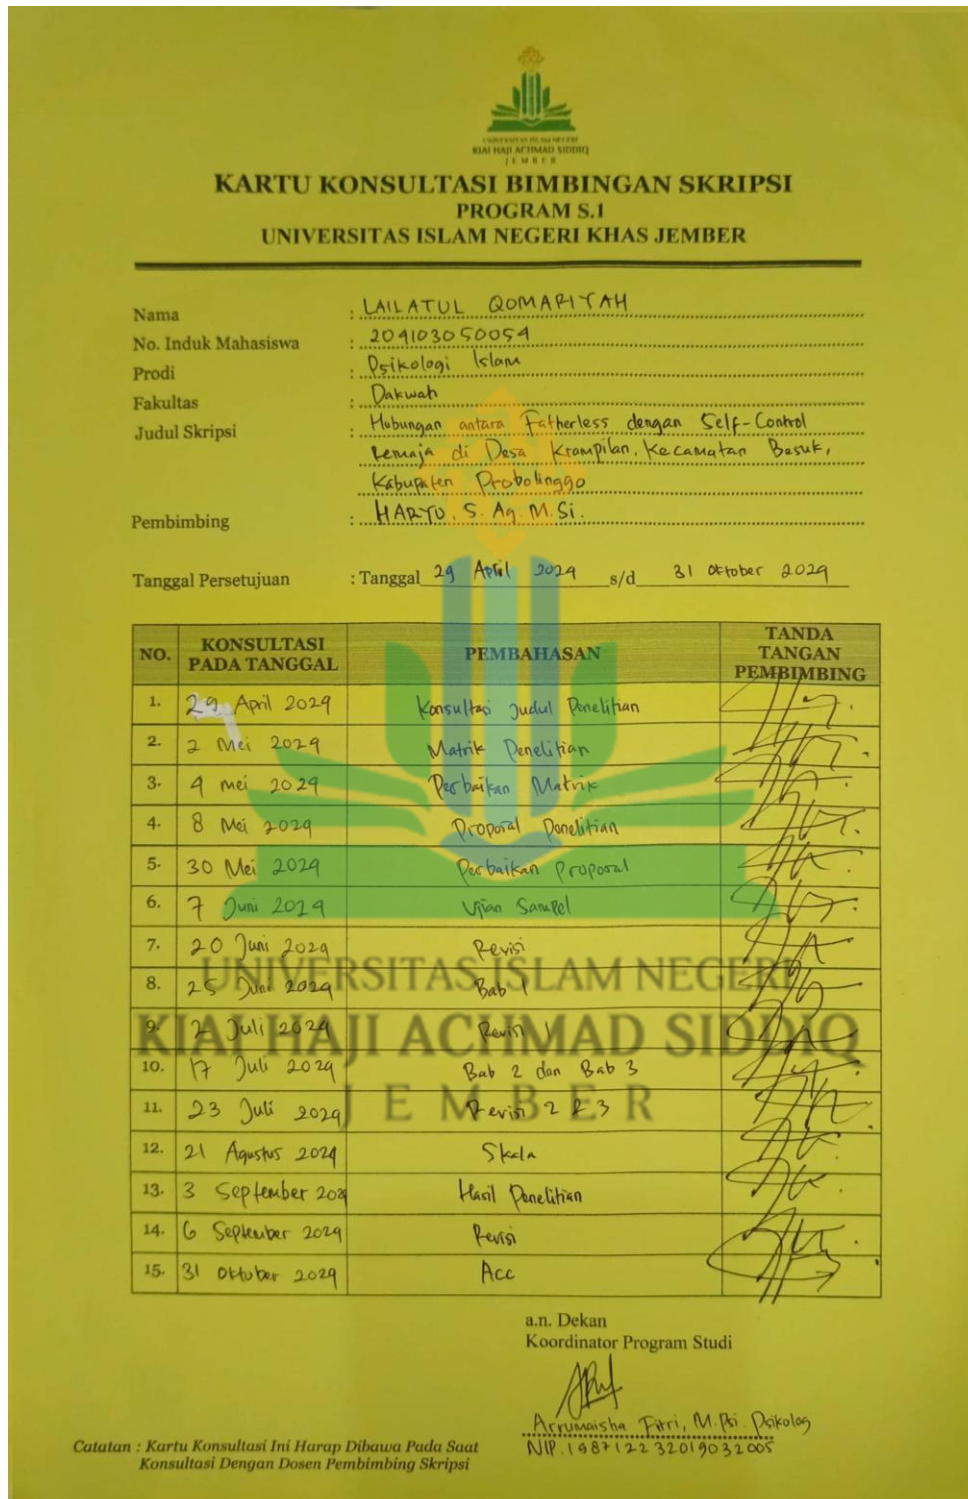 UNIVERSITAS ISLAM NEGERI
KIAI HAJI ACHMAD SIDDIQ
JEMBER
KARTU KONSULTASI BIMBINGAN SKRIPSI
PROGRAM S.1
UNIVERSITAS ISLAM NEGERI KHAS JEMBER
Nama : LAILATUL QOMARIYAH
No. Induk Mahasiswa : 204103050054
Prodi : Psikologi Islam
Fakultas : Dakwah
Judul Skripsi : Hubungan antara Fatherless dengan Self-Control
Remaja di Desa Krampilan, Kecamatan Besuk,
Kabupaten Probolinggo
Pembimbing : HARYU, S. Ag. M. Si.
Tanggal Persetujuan : Tanggal 29 April 2024 s/d 31 Oktober 2024
NO. KONSULTASI PADA TANGGAL PEMBAHASAN TANDA TANGAN PEMBIMBING
1. 29 April 2024 Konsultasi Judul Penelitian
2. 2 Mei 2024 Matrik Penelitian
3. 4 mei 2024 Perbaikan Matrik
4. 8 Mei 2024 Proposal Penelitian
5. 30 Mei 2024 Perbaikan Proposal
6. 7 Juni 2024 Ujian Sempel
7. 20 Juni 2024 Revisi
8. 25 Juni 2024 Bab 1
9. 2 Juli 2024 Revisi 1
10. 17 Juli 2024 Bab 2 dan Bab 3
11. 23 Juli 2024 Revisi 2 & 3
12. 21 Agustus 2024 Skala
13. 3 September 2024 Hasil Penelitian
14. 6 September 2024 Revisi
15. 31 Oktober 2024 Acc
UNIVERSITAS ISLAM NEGERI
KIAI HAJI ACHMAD SIDDIQ
JEMBER
a.n. Dekan
Koordinator Program Studi
Arrumaisha Fitri, M.Psi. Psikolog
NIP. 198712232019032005
Catatan : Kartu Konsultasi Ini Harap Dibawa Pada Saat
Konsultasi Dengan Dosen Pembimbing Skripsi